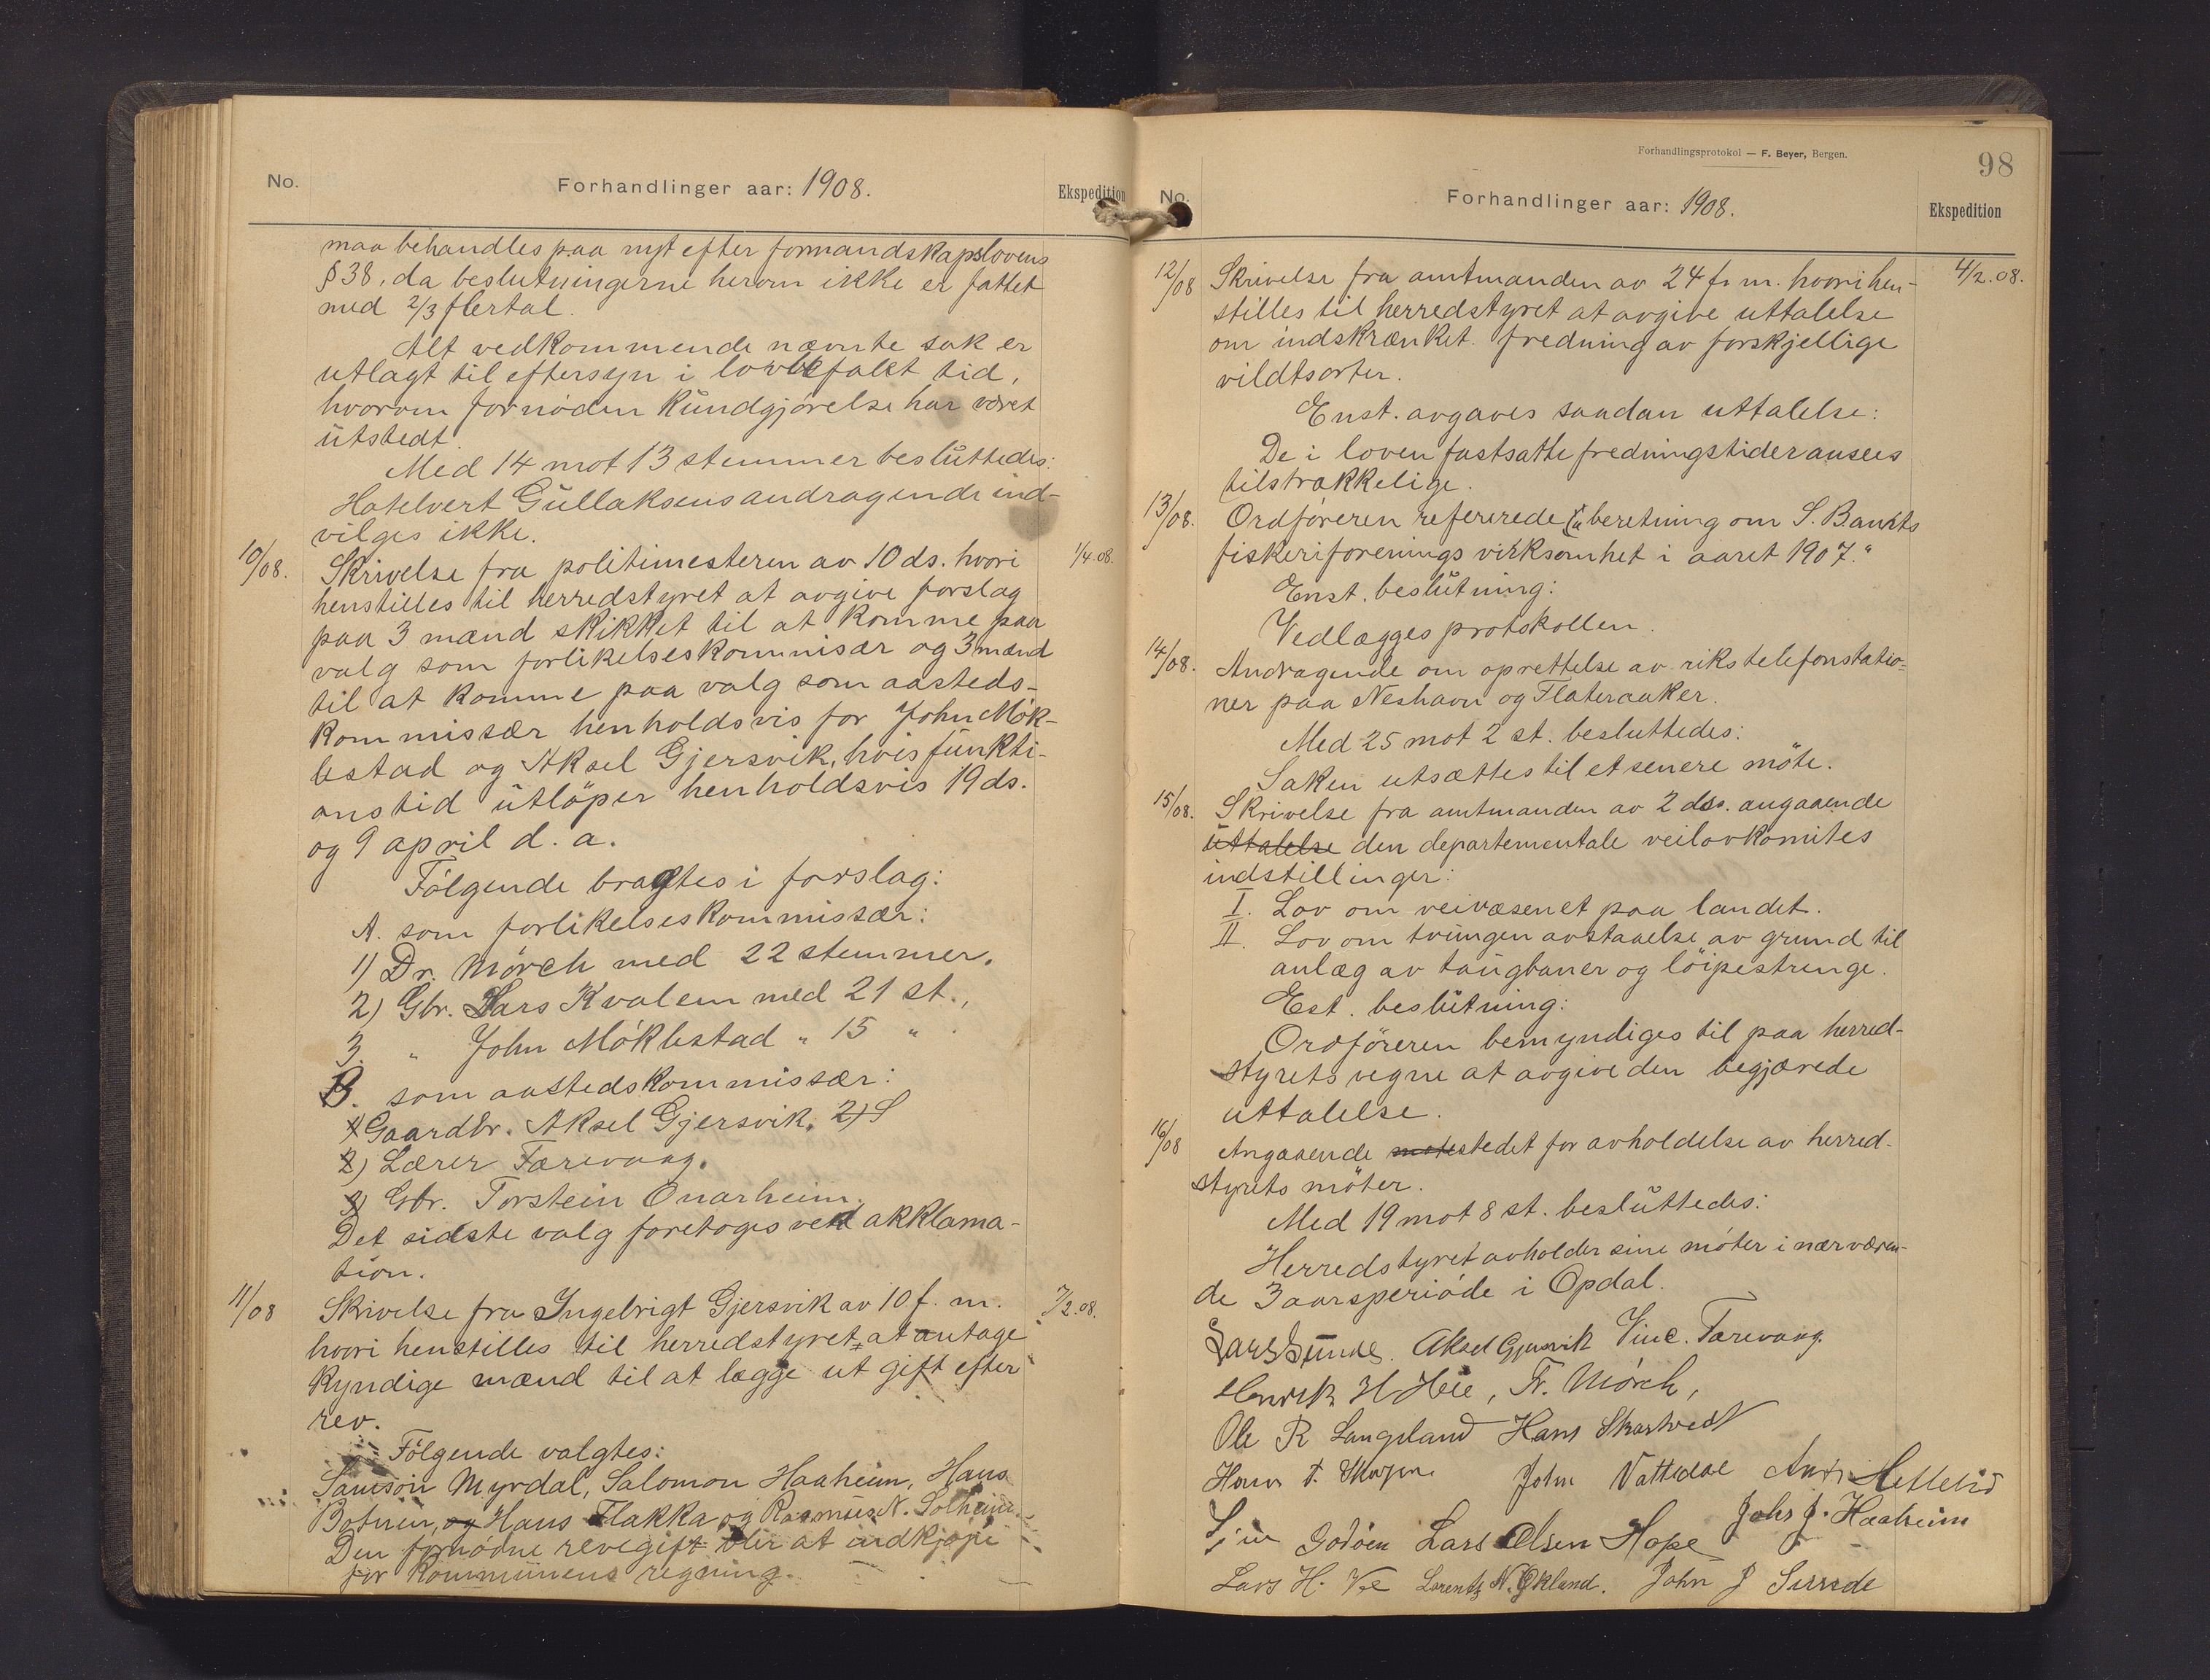 No.
Forhandlinger aar: 1908.
Ekspedition
maa behandles paa nyt efter formandskapslovens
§ 38, da beslutningerne herom ikke er fattet
med 2/3 flertal.
Alt vedkommende nævnte sak er
utlagt til eftersyn i lovbefalt tid,
hvorom fornøden kundgjørelse har været
utstedt.
Med 14 mot 13 stemmer besluttedes:
Hotelvert Gullaksens andragende ind-
vilges ikke.
10/08. Skrivelse fra politimesteren av 10 ds. hvori 1/4 08.
henstilles til herredstyret at avgive forslag
paa 3 mænd skikket til at komme paa
valg som forlikelseskommisær og 3 mænd
til at komme paa valg som aasteds-
kommissær henholdsvis for John Mök-
lestad og Aksel Gjersvik, hvis funkti-
onstid utlöper henholdsvis 19 ds.
og 9 april d. a.
Fölgende bragtes i forslag:
A. som forlikelseskommissær:
1) Dr. Mörch med 22 stemmer.
2) Gbr. Lars Kvalem med 21 st.,
3. " John Möklestad " 15 " .
B. som aastedskommissær:
1) Gaardbr. Aksel Gjersvik. 2) S
2) Lærer Færevaag.
3) Gbr. Torstein Onarheim.
Det sidste valg foretoges ved akklama-
tion.
11/08 Skrivelse fra Ingebrigt Gjersvik av 10 f. m. 7/2.08.
hvori henstilles til herredstyret at antage
kyndige mænd til at lægge ut gift efter
rev.
Fölgende valgtes:
Samson Myrdal, Salomon Haaheim, Hans
Botnen, og Hans Flakka og Rasmus N. Solheim.
Den fornødne revegift blir at indkjøpe
for kommunens regning.
Forhandlingsprotokol — F. Beyer, Bergen.
98
No.
Forhandlinger aar: 1908.
Ekspedition
12/08 Skrivelse fra amtmanden av 24 f. m. hvori hen- 4/2.08.
stilles til herredstyret at avgive uttalelse
om indskrænket fredning av forskjellige
vildtsorter.
Enst. avgaves saadan uttalelse:
De i loven fastsatte fredningstider ansees
tilstrækkelige.
13/08. Ordføreren refererede "beretning om S. Bamts
fiskeriforenings virksomhet i aaret 1907."
Enst. beslutning:
Vedlægges protokollen.
14/08. Andragende om oprettelse av rikstelefonstatio-
ner paa Neshavn og Flateraaker.
Med 25 mot 2 st. besluttedes:
Saken utsættes til et senere möte.
15/08. Skrivelse fra amtmanden av 2 ds. angaaende
uttalelse den departementale veilovkomites
indstillinger:
I. Lov om veivæsenet paa landet.
II. Lov om tvungen avstaaelse av grund til
anlæg av taugbaner og löipestrenge.
Est. beslutning:
Ordföreren bemyndiges til paa herred-
styrets vegne at avgive den begjærede
uttalelse.
16/08 Angaaende motestedet for avholdelse av herred-
styrets möter.
Med 19 mot 8 st. besluttedes:
Herredstyret avholder sine möter i nærværen-
de 3 aarsperiode i Opdal.
Lars Sunde. Aksel Gjersvik Vinc. Færevaag.
Henrik H Heie, Fr. Mörch,
Ole R Langeland Hans Skartvedt
Hans T. John Vattedal Hettelid
Godöen Lars Olsen Hope Johs J. Haaheim
Lars H. Vee Lorentz N. Økland. John J Sunde